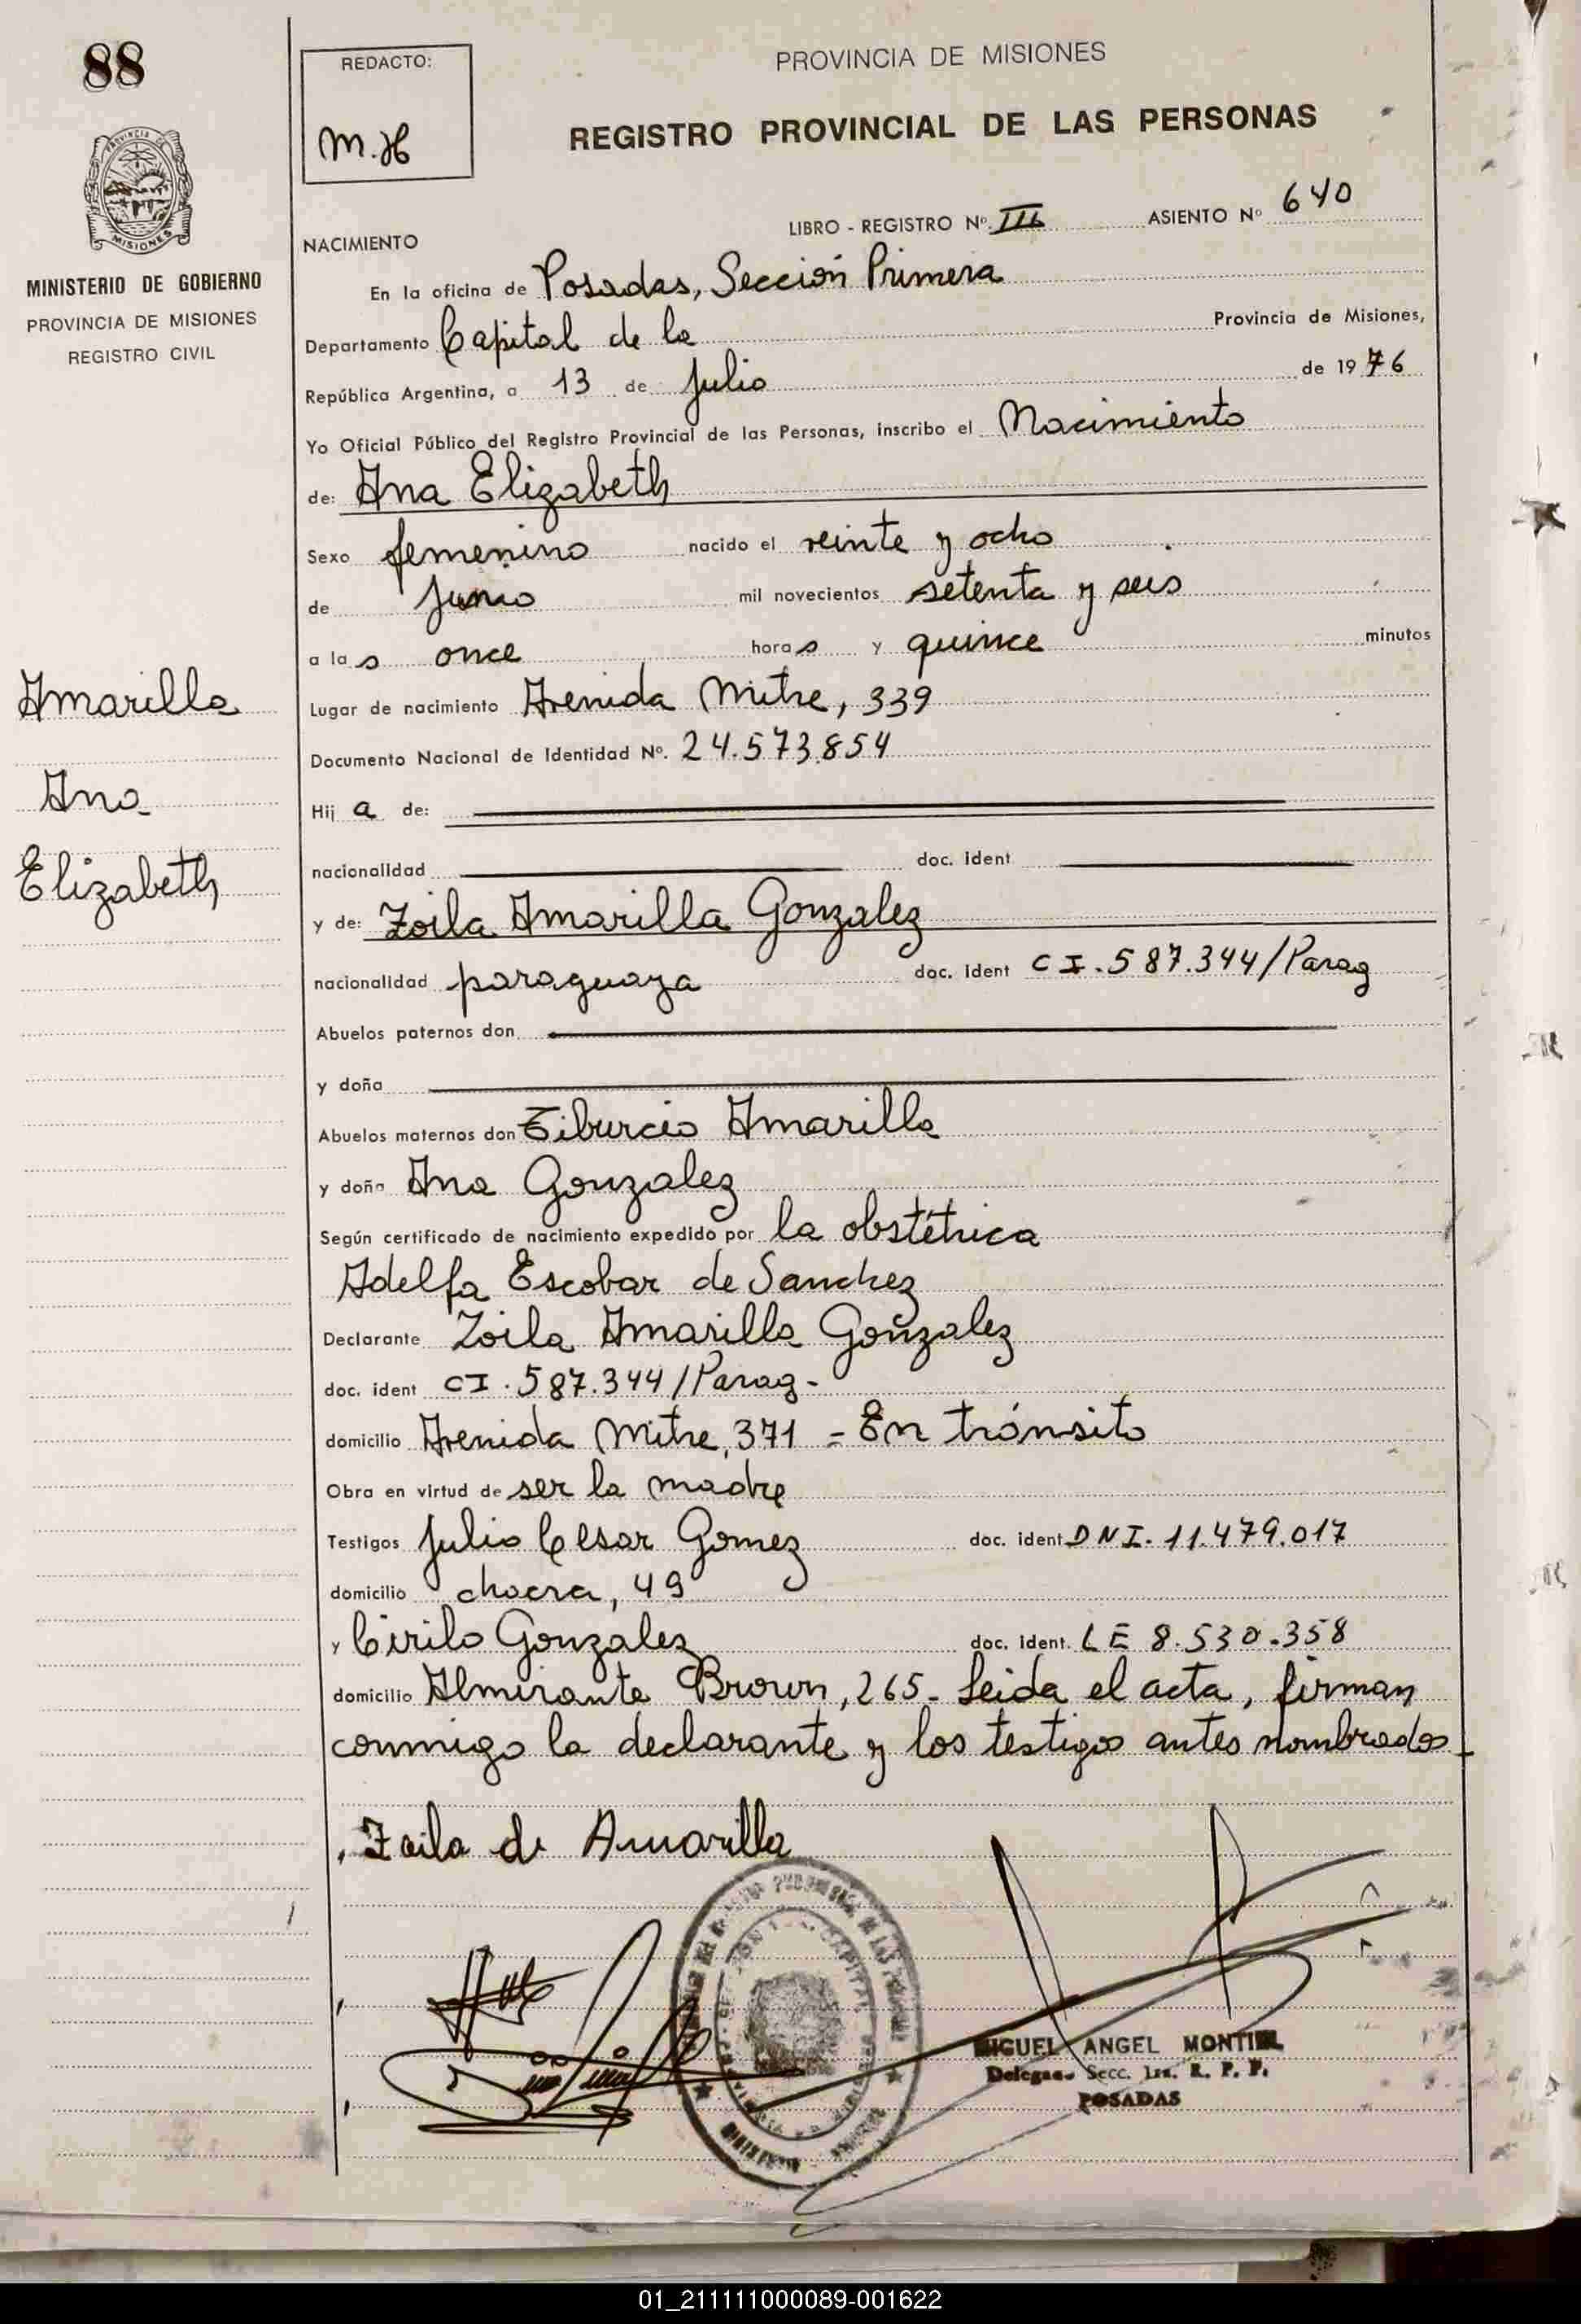 88
REDACTO:
M.H
PROVINCIA DE MISIONES
REGISTRO PROVINCIAL DE LAS PERSONAS
PROVINCIA DE
MISIONES
MINISTERIO DE GOBIERNO
PROVINCIA DE MISIONES
REGISTRO CIVIL
LIBRO - REGISTRO Nº III ASIENTO Nº 640
NACIMIENTO
En la oficina de Posadas, Sección Primera
Departamento Capital de la Provincia de Misiones,
República Argentina, a 13 de Julio de 1976
Yo Oficial Público del Registro Provincial de las Personas, inscribo el Nacimiento
de: Ana Elizabeth
Sexo femenino nacido el veinte y ocho
de Junio mil novecientos setenta y seis
a las once horas y quince minutos
Lugar de nacimiento Avenida Mitre, 339
Documento Nacional de Identidad Nº. 24.573.854
Hija de:
nacionalidad doc. ident
y de: Zoila Amarilla Gonzalez
nacionalidad paraguaya doc. ident CI.587.344/Parag
Abuelos paternos don
y doña
Abuelos maternos don Tiburcio Amarilla
y doña Ana Gonzalez
Según certificado de nacimiento expedido por la obstétrica
Adelfa Escobar de Sanchez
Declarante Zoila Amarilla Gonzalez
doc. ident CI.587.344/Parag-
domicilio Avenida Mitre, 371 = En tránsito
Obra en virtud de ser la madre
Testigos Julio Cesar Gomez doc. ident DNI. 11.479.017
domicilio chacra, 49
y Cirilo Gonzalez doc. ident. LE 8.530.358
domicilio Almirante Brown, 265- Leida el acta, firman
conmigo la declarante y los testigos antes nombrados-
Amarilla
Ana
Elizabeth
Zoila de Amarilla
MIGUEL ANGEL MONTIEL
Delegado Secc. 1ra. R. P. P.
POSADAS
01_211111000089-001622